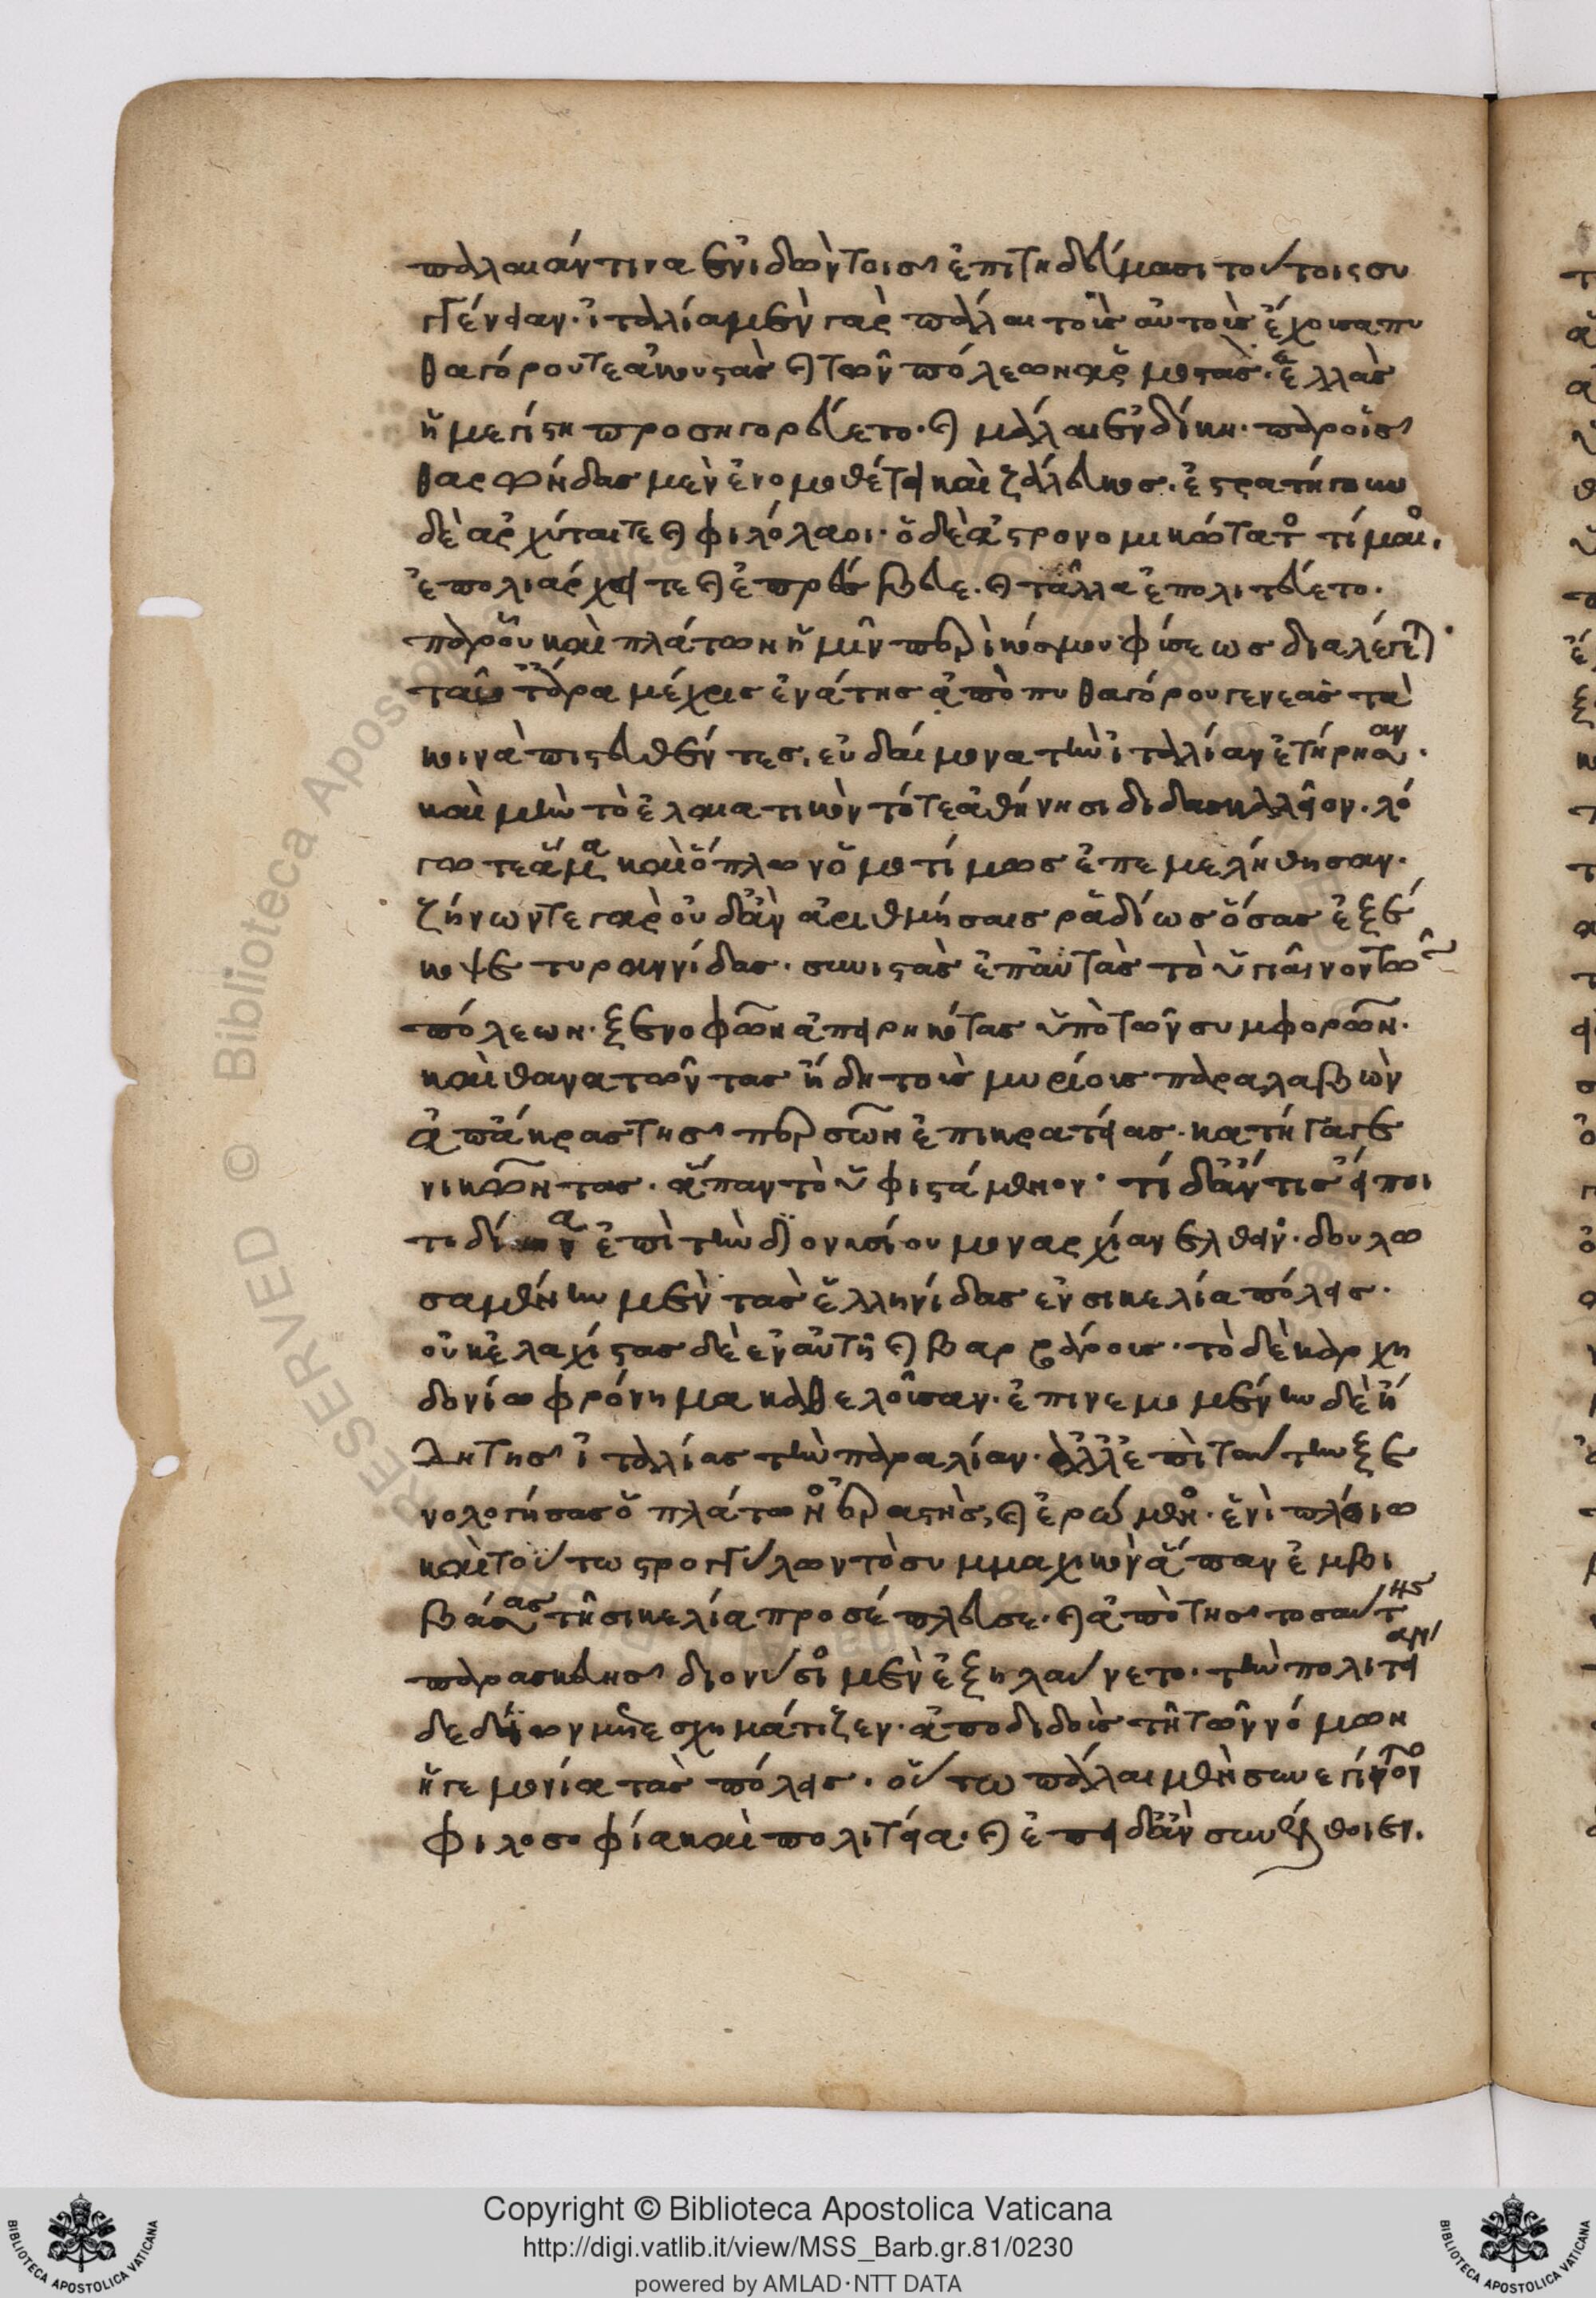 παλαιάν τινα ἐνιδὼν τοῖς ἐπιτηδεύμασι τούτοις συ
γγένειαν. ἰταλία μὲν γὰρ πάλαι τοὺς αὐτοὺς ἔχουσα πυ
θαγόρου τε ἀκουστὰς καὶ τῶν πόλεων ἁρμοστὰς. ἑλλὰς
ἡ μεγίστη προσηγορεύετο. καὶ μάλα ἐν δίκῃ. παρ' οἷς
χαρώνδας μὲν ἐνομοθέτει καὶ ζάλευκος. ἐστρατήγουν
δὲ ἀρχύται τε καὶ φιλόλαοι. ὁ δὲ ἀστρονομικώτατος τίμαιος
ἐπολιάρχει τε καὶ ἐπρέσβευε. καὶ τἄλλα ἐπολιτεύετο.
παρ' οὗ καὶ πλάτων ἡμῖν περὶ κόσμου φύσεως διαλέγεται.
ταῦτ' ἄρα μέχρις ἐνάτης ἀπὸ πυθαγόρου γενεᾶς τὰ
κοινὰ πιστευθέντες. εὐδαίμονα τὴν ἰταλίαν ἐτήρησαν.
καὶ μὴν τὸ ἐλεατικὸν τό τε ἀθήνησι διδασκαλεῖον. λό
γων τε ἅμα καὶ ὅπλων ὁμοτίμως ἐπεμελήθησαν.
ζήνων τε γὰρ οὐδ' ἂν ἀριθμήσαις ῥᾳδίως ὅσας ἐξέ
κοψε τυραννίδας. συνιστὰς ἐπ' αὐτὰς τὸ ὑγιαῖνον τῶν
πόλεων. ξενοφῶν ἀπειρηκότας ὑπὸ τῶν συμφορῶν.
καὶ θανατῶντας ἤδη τοὺς μυρίους παραλαβὼν
ἀπ' ἄκρας τῆς περσῶν ἐπικρατείας. κατήγαγε
νικῶντας. ἅπαν τὸ ὑφιστάμενον. τί δ' ἄν τις εἴποι
το δίωνα ἐπὶ τὴν διονυσίου μοναρχίαν ἐλθεῖν. δουλω
σαμένην μὲν τὰς ἑλληνίδας ἐν σικελίᾳ πόλεις.
οὐκ ἐλαχίστας δὲ ἐν αὐτῇ καὶ βαρβάρους. τὸ δὲ καρχη
δονίων φρόνημα καθελοῦσαν. ἐπινεμομένην δὲ ἤ
δη τῆς ἰταλίας τὴν παραλίαν. ἀλλ' ἐπὶ ταύτην ξε
νολογήσας ὁ πλάτωνος ἐραστὴς, καὶ ἐρώμενος. ἑνὶ πλοίω
καὶ τούτω στρογγύλω τὸ συμμαχικὸν ἅπαν ἐμβι
βάσας τῇ σικελίᾳ προσέπλευσε. καὶ ἀπὸ τῆς τοσαύτης
παρασκευῆς διονύσιος μὲν ἐξηλαύνετο. τὴν πολιτείαν
δὲ δίων μετεσχημάτιζεν. ἀποδιδοὺς τῇ τῶν νόμων
ἡγεμονίᾳ τὰς πόλεις. οὕτω πάλαι μὲν συνεγίνοντο
φιλοσοφία καὶ πολιτεία. καὶ ἐπειδὰν συνέλθοιεν.
Copyright © Biblioteca Apostolica Vaticana
http://digi.vatlib.it/view/MSS_Barb.gr.81/0230
powered by AMLAD·NTT DATA